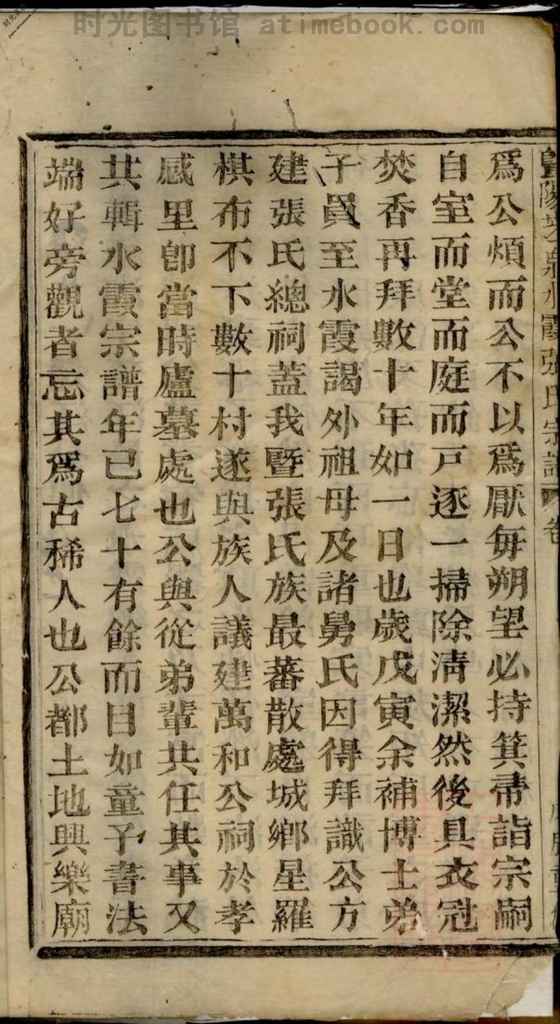 时光图书馆 atimebook.com
水霞張氏宗譜
爲公煩而公不以爲厭每朔望必持箕帚詣宗嗣
自室而堂而庭而戸逐一掃除清潔然後具衣冠
焚香再拜數十年如一日也歲戊寅余補博士弟
子員至水霞謁外祖母及諸舅氏因得拜識公方
建張氏總祠蓋我暨張氏族最蕃散處城鄉星羅
棋布不下數十村遂與族人議建萬和公祠於孝
感里卽當時廬墓處也公與從弟輩共任其事又
共輯水霞宗譜年已七十有餘而目如童子書法
端好旁觀者忘其爲古稀人也公都土地興樂廟